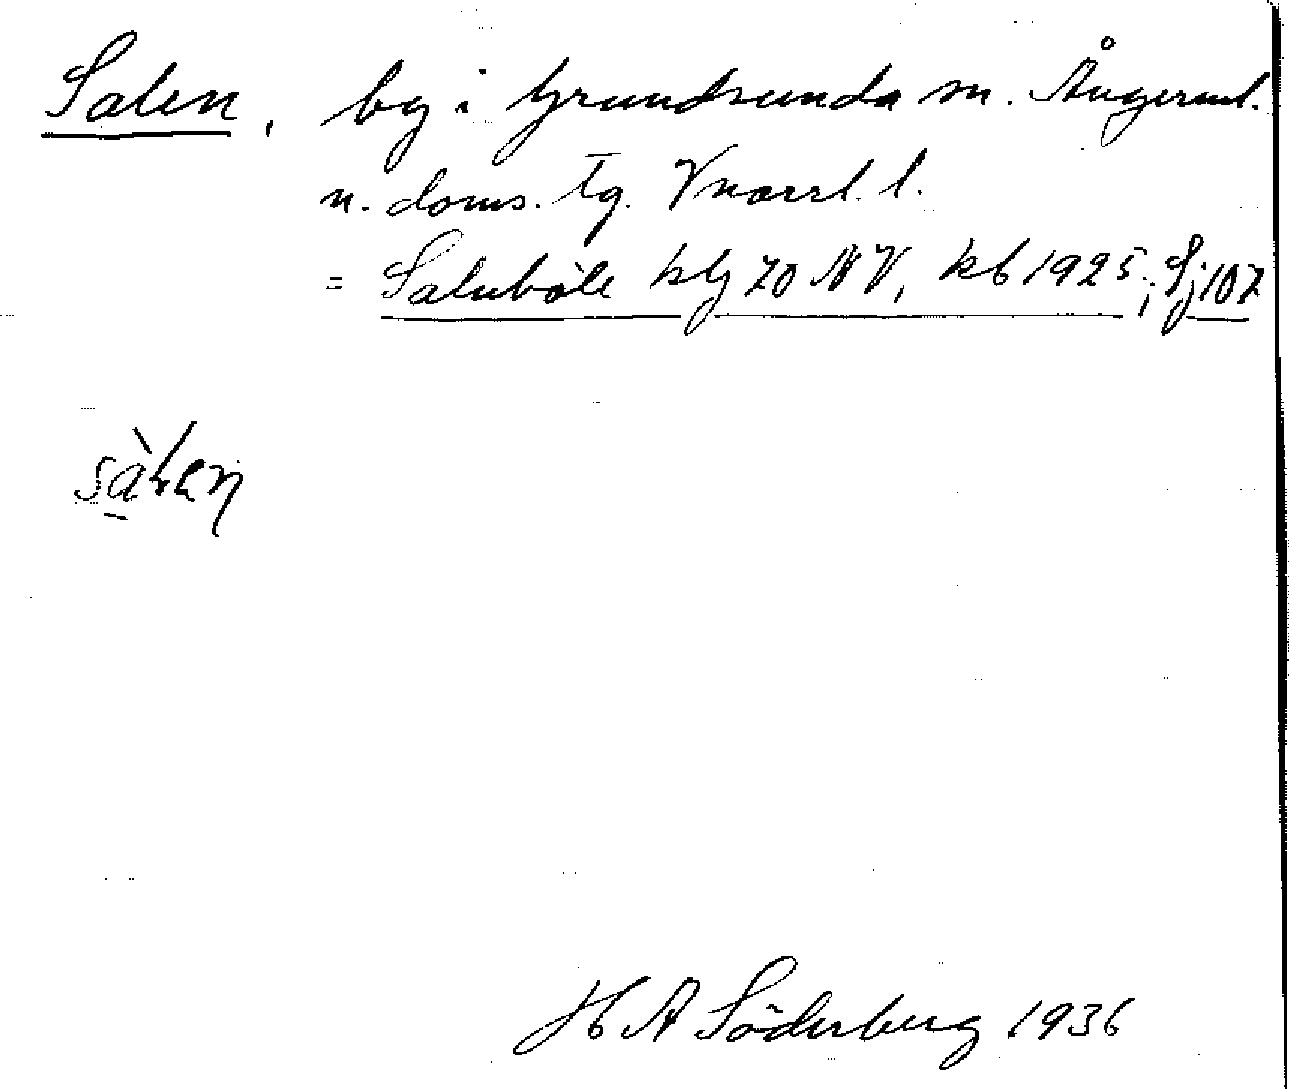 Salen, by i Grundsunda sn. Ångerml.
n. doms. tg. Vnorrl. l.
= Salnböle hlj 70 NV, kb 1925; Sj 107
H A Söderberg 1936